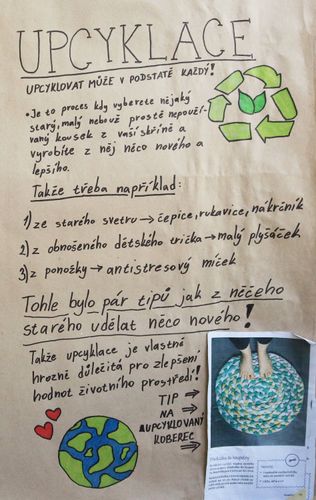 UPCYKLACE
UPCYKLOVAT MŮŽE V PODSTATĚ KAŽDÝ!
• Je to proces kdy vyberete nějaký
starý, malý nebo už prostě nepouží-
vaný kousek z vaší skříně a
vyrobíte z něj něco nového a
lepšího.
Takže třeba například:
1) ze starého svetru → čepice, rukavice, nákrčník
2) z obnošeného dětského trička → malý plyšáček
3) z ponožky → antistresový míček
Tohle bylo pár tipů jak z něčeho
starého udělat něco nového!
Takže upcyklace je vlastně
hrozně důležitá pro zlepšení
hodnot životního prostředí!
TIP →
NA →
AUPCYKLOVANÝ
KOBEREC →